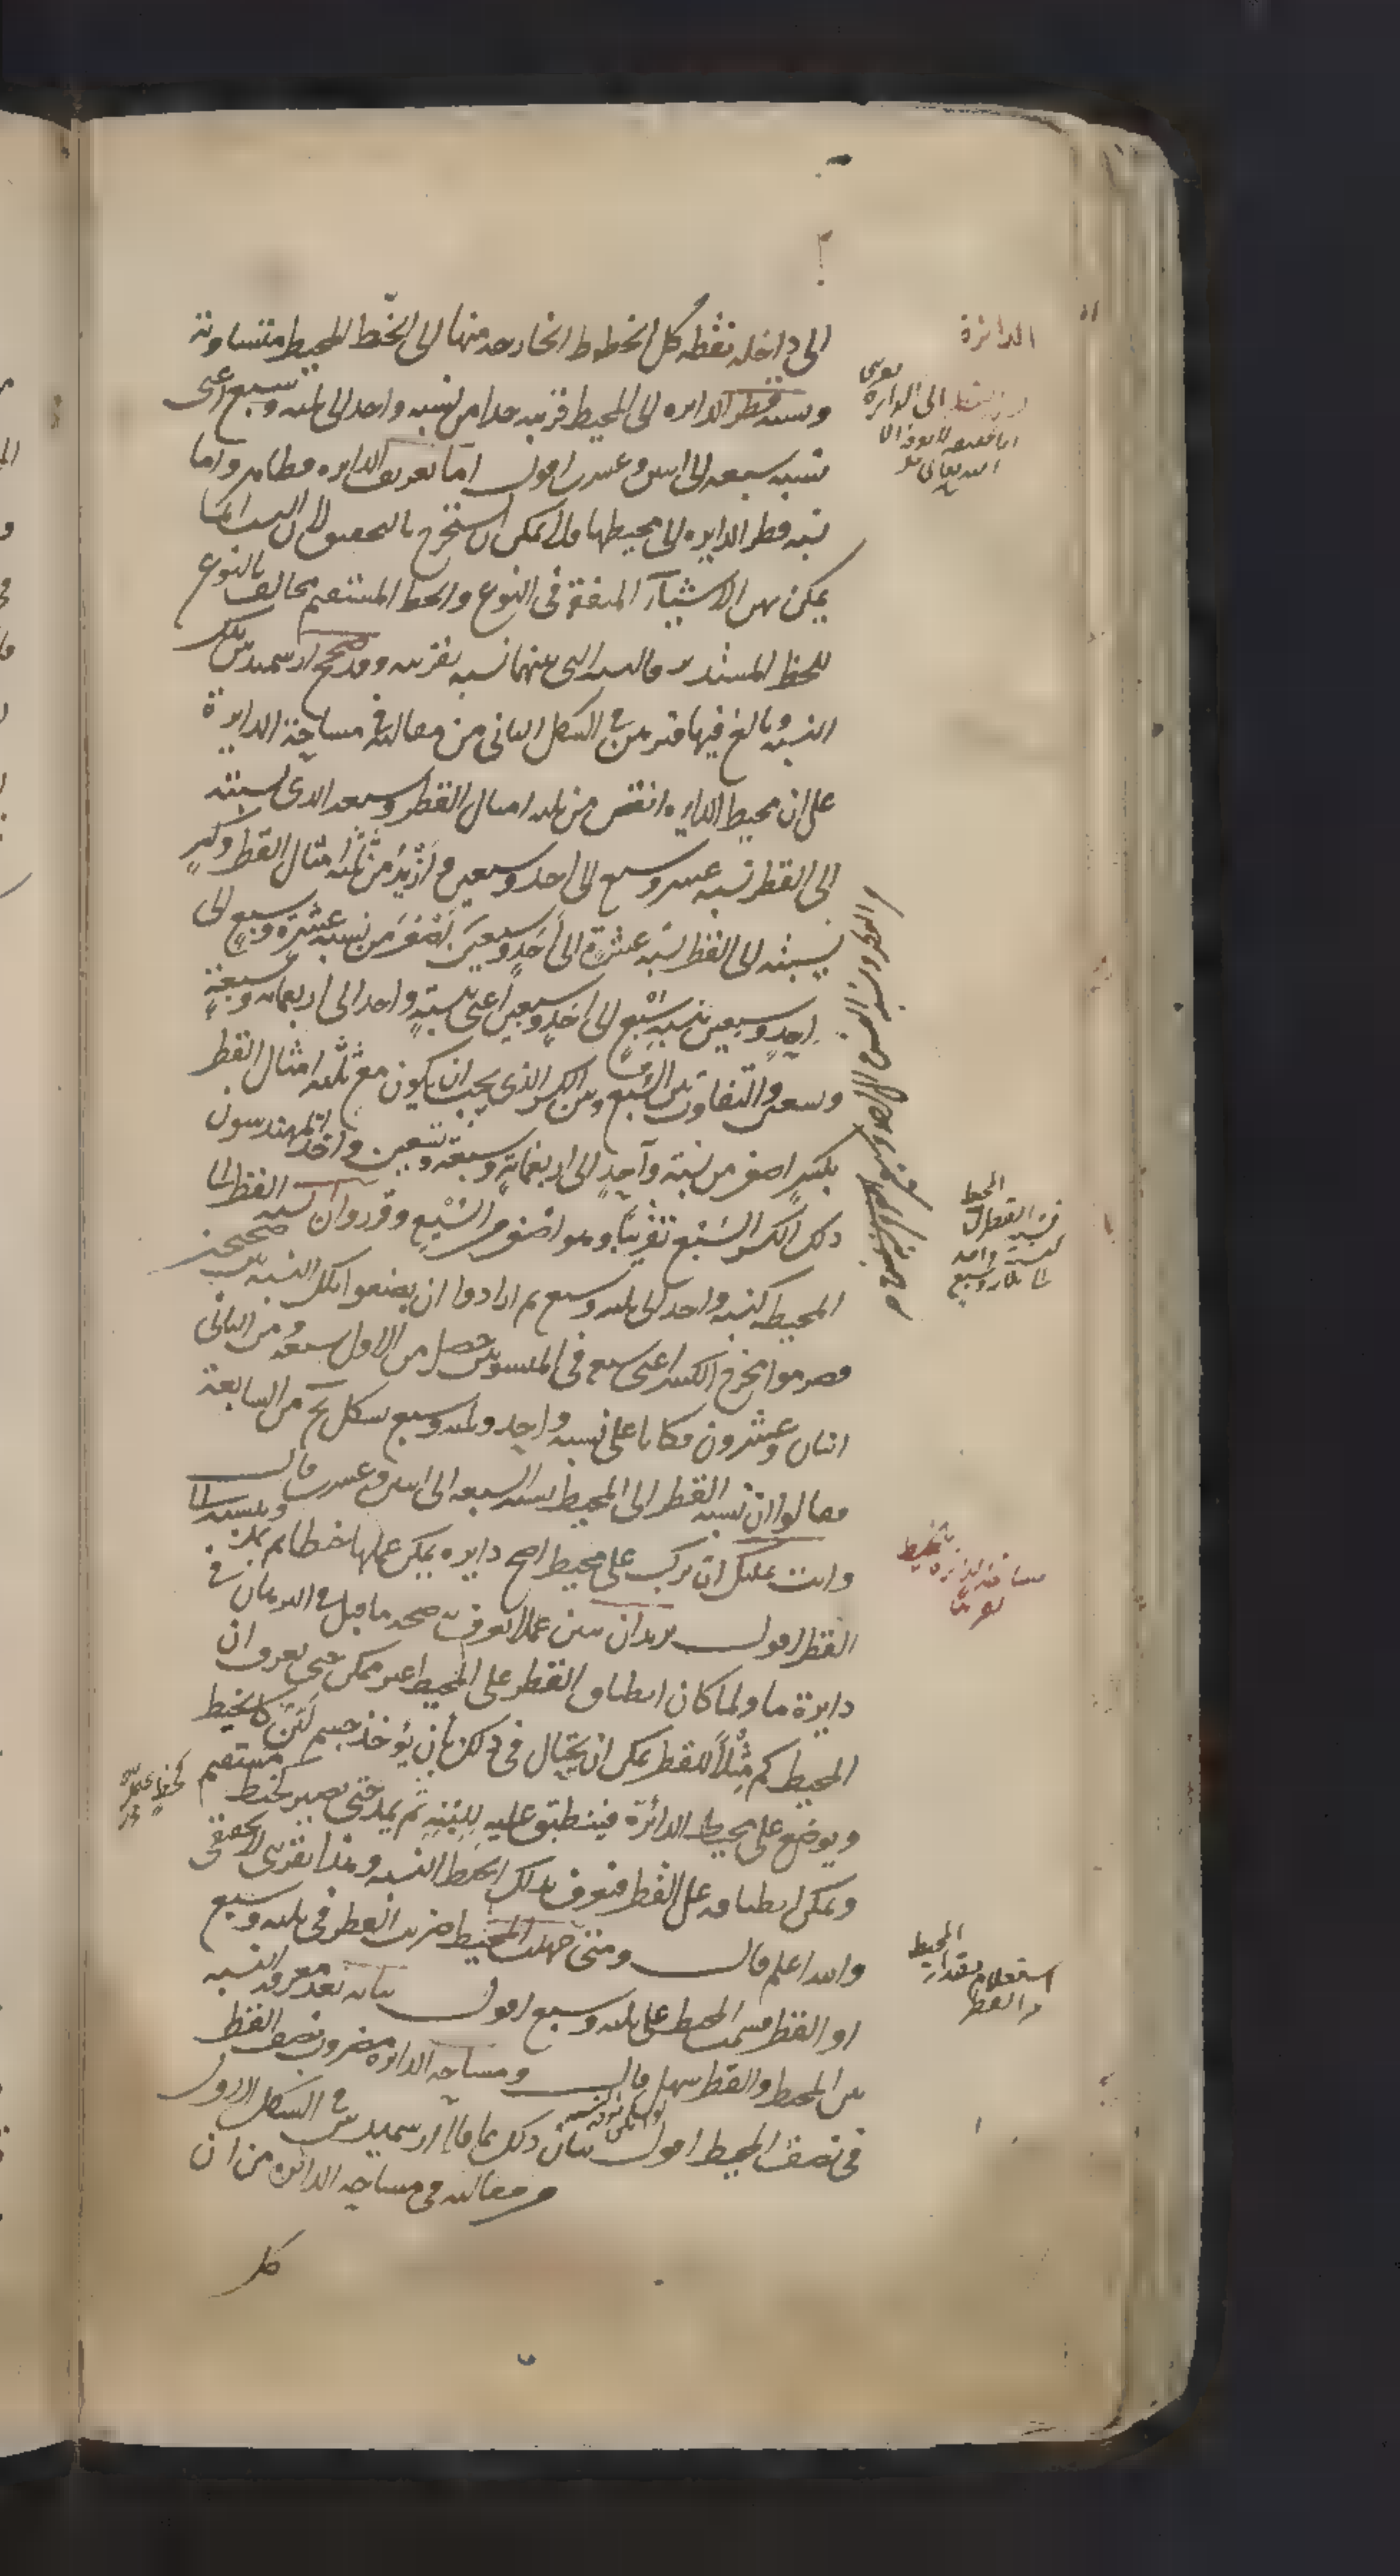 الى داخله نقطه كل الخطوط الخارجه منها الى الخط المحيط متساوية
ونسبه قطر الدايره الى المحيط قريبه جدا من نسبه واحد الى ثلثه وسبع اعنى
نسبه سبعه الى اثنين وعشرين اقول اما تعريف الدايره فظاهر واما
نسبه قطر الدايره الى محيطها فلا يمكن ان يستخرج بالتحقيق لان النسب انما
يمكن بين الاشيآء المتفقة فى النوع والخط المستقيم مخالف بالنوع
للخط المستدير فالنسبه التى بينهما نسبه تقريبيه وقد صحح ارسميدس تلك
النسبة وبالغ فيها فبرهن فى الشكل الثانى من مقالته فى مساحة الدايرة
على ان محيط الدايره انقص من ثلثه امثال القطر وسبعه الذى نسبته
الى القطر نسبه عشره وسبع الى احد وسبعين وازيد من ثلثه امثال القطر وكسر
نسبته الى القطر نسبه عشرة الى احد وسبعين اصغر من نسبه عشره وسبع الى
احد وسبعين بنسبه سبع الى احد وسبعين اعنى نسبة واحد الى اربعمايه وسبعة
وتسعين والتفاوت بين السبع وبين الكسر الذى يجب ان يكون مع ثلثه امثال القطر
بكسر اصغر من نسبة واحد الى اربعماية وسبعة وتسعين واخذ المهندسون
ذلك الكسر السبع تقريبا وهو اصغر من السبع وقرروا ان نسبه القطر الى
المحيط كنسبه واحد الى ثلثه وسبع ثم ارادوا ان يضعوا تلك النسبه صحيحين
فضربوا مخرج الكسر اعنى سبع فى المنسوبين حصل من الاول سبعه ومن الثانى
اثنان وعشرون فكانا على نسبه واحد وثلثه وسبع بشكل يح من السابعة
فقالوا ان نسبه القطر الى المحيط نسبه السبعه الى اثنين وعشرين قال
وانت عليك ان تركب على محيط اصح دايره يمكن عملها خيطا ثم تمده وتنسبه الى
القطر اقول يريد ان يبين عملا يعرف به صحه ما قيل فى البرهان فى
دايرة ما ولما كان انطباق القطر على المحيط غير ممكن حتى يعرف ان
المحيط كم مثلا للقطر يمكن ان يحتال فى ذلك بان يؤخذ جسم لين كالخيط
ويوضع على محيط الدائرة فينطبق عليه للينه ثم يمد حتى يصير كخط مستقيم
ويمكن انطباقه على القطر فتعرف بذلك الخط النسبه وهذا تقريبى لا تحقيقى
والله اعلم قال ومتى جهلت المحيط ضربت القطر فى ثلثه وسبع
او القطر قسمت المحيط على ثلثه وسبع اقول بيانه بعد معرفه النسبه
بين المحيط والقطر سهل قال ومساحه الدايره مضروب نصف القطر
فى نصف المحيط اقول بيان ذلك بما قال ارسميدس فى الشكل الاول
من مقالته فى مساحه الدائره من ان
كل
الدائرة
نسبة القطر الى المحيط
كنسبة واحد
الى ثلثة وسبع
استعلام مقدار المحيط
والقطر